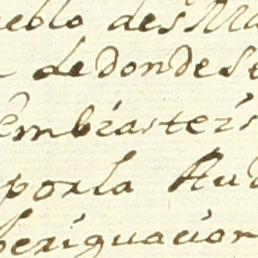 ueblo des Ma
de donde se
embiasteis
por la Aud
beriguacion